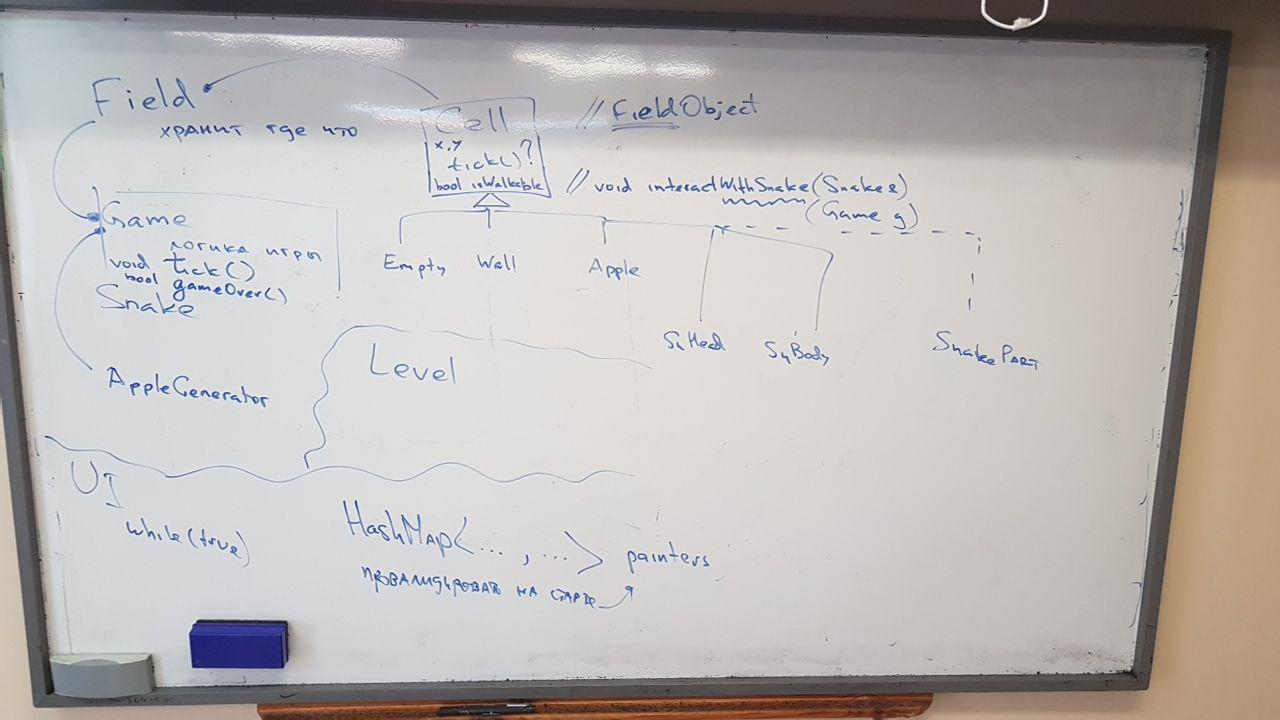 Field
хранит где что
Cell // FieldObject
x,y
tick()?
bool isWalkable // void interactWithSnake(Snake s)
(Game g)
Game
логика игры
void tick()
bool gameOver()
Snake
Empty Wall Apple
SnHead SnBody SnakePART
Level
AppleGenerator
UI
while(true)
HashMap<... , ...> painters
провалидировать на старте